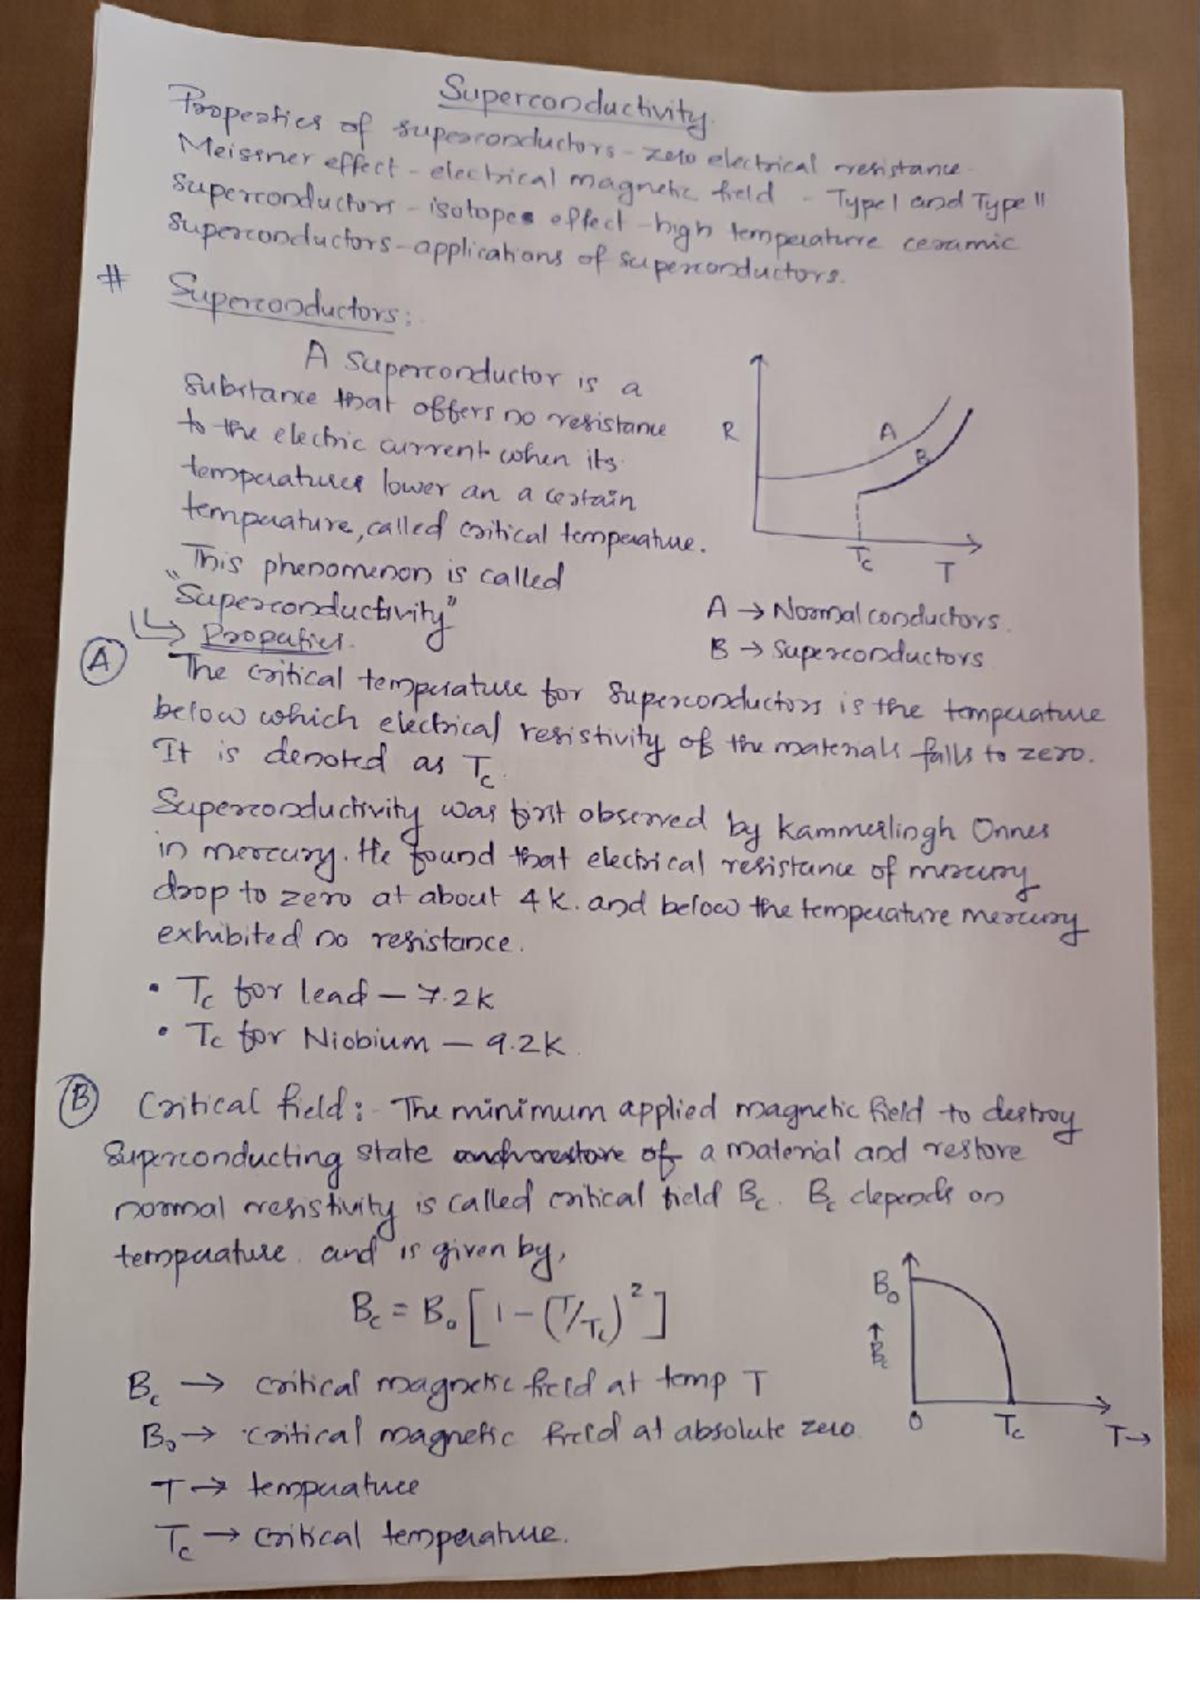 Superconductivity.
Properties of superconductors - zero electrical resistance -
Meissner effect - electrical magnetic field - Type I and Type II
superconductors - isotopes effect - high temperature ceramic
superconductors - applications of superconductors.
# Superconductors:
A superconductor is a
substance that offers no resistance
to the electric current when its
temperatures lower an a certain
temperature, called critical temperature.
This phenomenon is called
"Superconductivity"
R
A
B
Tc
T
A → Normal conductors.
B → Superconductors
↳ Properties.
(A) The critical temperature for superconductors is the temperature
below which electrical resistivity of the materials falls to zero.
It is denoted as Tc.
Superconductivity was first observed by Kammerlingh Onnes
in mercury. He found that electrical resistance of mercury
drop to zero at about 4K. and below the temperature mercury
exhibited no resistance.
• Tc for lead — 7.2K
• Tc for Niobium — 9.2K.
(B) Critical field:- The minimum applied magnetic field to destroy
Superconducting state of a material and restore
normal resistivity is called critical field Bc. Bc depends on
temperature. and is given by,
Bc = B₀ [1 - (T/Tc)²]
B₀
↑
Bc
0
Tc
T→
Bc → critical magnetic field at temp T
B₀ → critical magnetic field at absolute zero.
T → temperature
Tc → critical temperature.